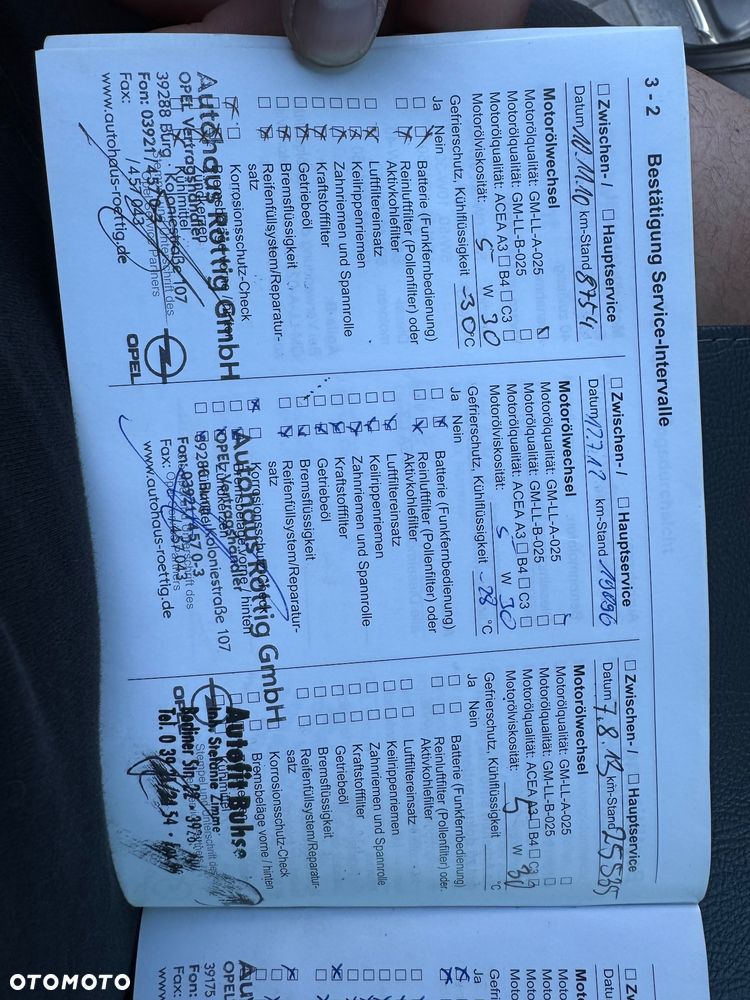 3 - 2 Bestätigung Service-Intervalle
☐ Zwischen- / ☐ Hauptservice
Datum 10.11.10 km-Stand 8754
Motorölwechsel
Motorölqualität: GM-LL-A-025
Motorölqualität: GM-LL-B-025
Motorölqualität: ACEA A3 ☐ B4 ☐ C3 ☐
Motorölviskosität: 5 W 30
Gefrierschutz, Kühlflüssigkeit -30 °C
Ja Nein
Batterie (Funkfernbedienung)
Reinluftfilter (Pollenfilter) oder
Aktivkohlefilter
Luftfiltereinsatz
Keilrippenriemen
Zahnriemen und Spannrolle
Kraftstofffilter
Getriebeöl
Bremsflüssigkeit
Reifenfüllsystem/Reparatur-
satz
Korrosionsschutz-Check
Autohaus Rörtig GmbH
OPEL Vertragshändler
39288 Burg · Koloniestraße 107
Fon: 03921/4570-3
Fax: /457043
www.autohaus-roettig.de
OPEL
☐ Zwischen- / ☐ Hauptservice
Datum 12.7.12 km-Stand 19096
Motorölwechsel
Motorölqualität: GM-LL-A-025
Motorölqualität: GM-LL-B-025
Motorölqualität: ACEA A3 ☐ B4 ☐ C3 ☐
Motorölviskosität: 5 W 30
Gefrierschutz, Kühlflüssigkeit -28 °C
Ja Nein
Batterie (Funkfernbedienung)
Reinluftfilter (Pollenfilter) oder
Aktivkohlefilter
Luftfiltereinsatz
Keilrippenriemen
Zahnriemen und Spannrolle
Kraftstofffilter
Getriebeöl
Bremsflüssigkeit
Reifenfüllsystem/Reparatur-
satz
vorne / hinten
Autohaus Rörtig GmbH
OPEL Vertragshändler
39288 Burg · Koloniestraße 107
Fon: 03921/4570-3
Fax: /457043
www.autohaus-roettig.de
☐ Zwischen- / ☐ Hauptservice
Datum 7.8.13 km-Stand 25585
Motorölwechsel
Motorölqualität: GM-LL-A-025
Motorölqualität: GM-LL-B-025
Motorölqualität: ACEA A3 ☐ B4 ☐ C3
Motorölviskosität: 5 W 30
Gefrierschutz, Kühlflüssigkeit °C
Ja Nein
Batterie (Funkfernbedienung)
Reinluftfilter (Pollenfilter) oder
Aktivkohlefilter
Luftfiltereinsatz
Keilrippenriemen
Zahnriemen und Spannrolle
Kraftstofffilter
Getriebeöl
Bremsflüssigkeit
Reifenfüllsystem/Reparatur-
satz
Korrosionsschutz-Check
Bremsbeläge vorne / hinten
Autofit Buhse
Inh. Stefanie Zimme
Tel. 0 39
OPEL
Motorölwechsel
Ja
39175
Fon:
Fax:
www
OTOMOTO